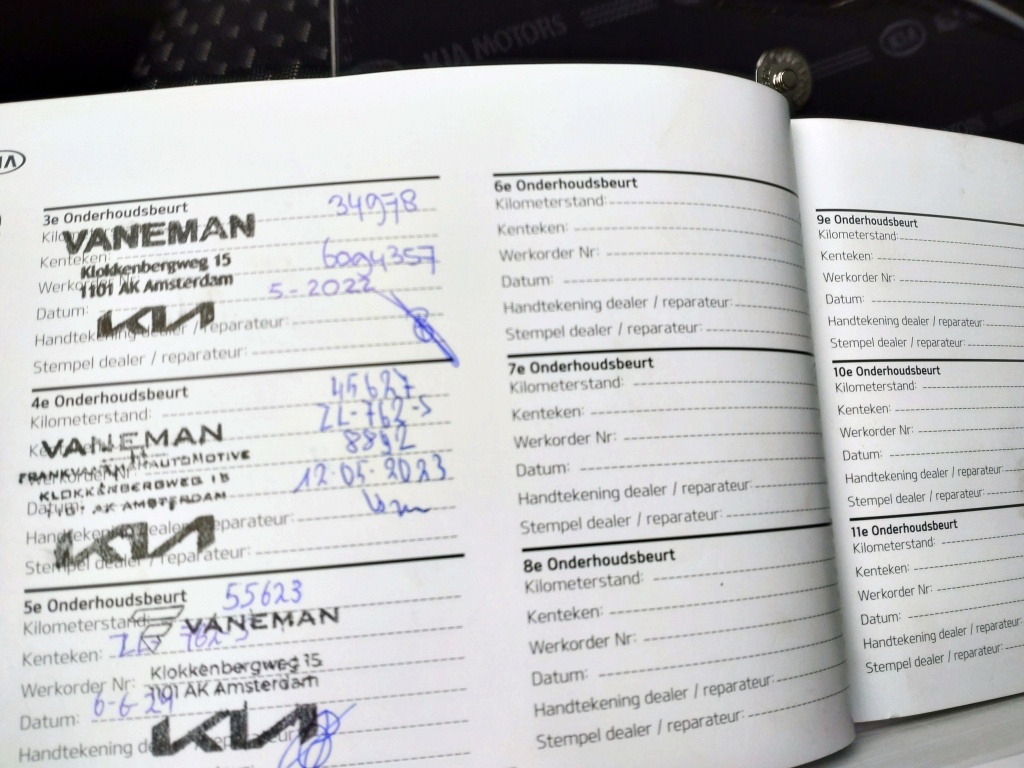 KIA MOTORS
KIA
3e Onderhoudsbeurt
34978
VANEMAN
Kenteken:
Klokkenbergweg 15
1101 AK Amsterdam
Datum:
5-2022
KIA
Handtekening dealer / reparateur:
Stempel dealer / reparateur:
4e Onderhoudsbeurt
45627
Kilometerstand:
ZL-762-S
VANEMAN
8892
AUTOMOTIVE
KLOKKENBERGWEG 15
1101 AK AMSTERDAM
12-05-2023
Handtekening dealer / reparateur:
KIA
Stempel dealer / reparateur:
5e Onderhoudsbeurt
55623
Kilometerstand:
VANEMAN
Kenteken:
Klokkenbergweg 15
Werkorder Nr:
1101 AK Amsterdam
Datum:
KIA
6e Onderhoudsbeurt
Kilometerstand:
Kenteken:
Werkorder Nr:
Datum:
Handtekening dealer / reparateur:
Stempel dealer / reparateur:
7e Onderhoudsbeurt
Kilometerstand:
Kenteken:
Werkorder Nr:
Datum:
Handtekening dealer / reparateur:
Stempel dealer / reparateur:
8e Onderhoudsbeurt
Kilometerstand:
Kenteken:
Werkorder Nr:
Datum:
Handtekening dealer / reparateur:
Stempel dealer / reparateur:
9e Onderhoudsbeurt
Kilometerstand:
Kenteken:
Werkorder Nr:
Datum:
Handtekening dealer / reparateur:
Stempel dealer / reparateur:
10e Onderhoudsbeurt
Kilometerstand:
Kenteken:
Werkorder Nr:
Datum:
Handtekening dealer / reparateur:
Stempel dealer / reparateur:
11e Onderhoudsbeurt
Kilometerstand:
Kenteken:
Werkorder Nr:
Datum:
Handtekening dealer / reparateur:
Stempel dealer / reparateur: